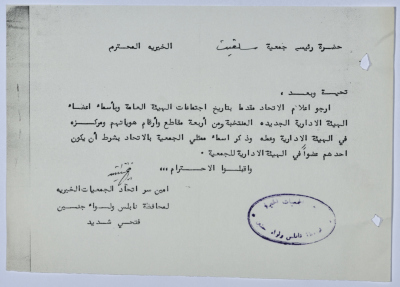 حضرة رئيس جمعية سلفيت الخيريه المحترم
تحية وبعد ،
ارجو اعلام الاتحاد مقدما بتاريخ اجتماعات الهيئة العامة وبأسماء اعضاء
الهيئة الادارية الجديده المنتخبة ومن أربعة مقاطع وأرقام هوياتهم ومركزه
في الهيئة الادارية وعمله وذكر اسماء ممثلي الجمعية بالاتحاد بشرط أن يكون
احدهم عضواً في الهيئة الادارية للجمعية ٠
واقبلوا الاحترام ،،،
امين سر اتحاد الجمعيات الخيريه
لمحافظة نابلس ولواء جنين
فتحي شديد